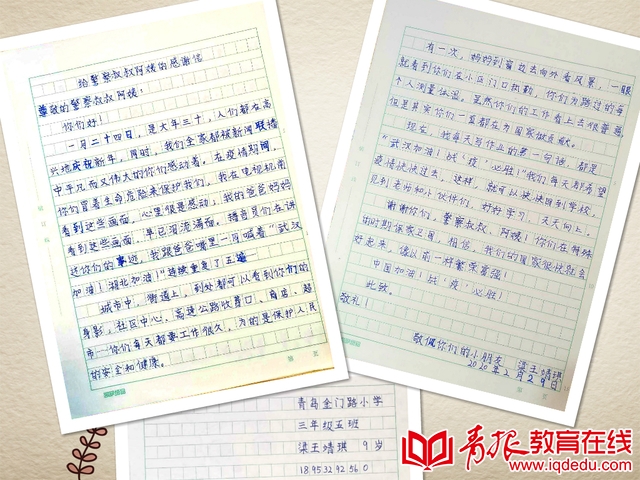 给警察叔叔阿姨的感谢信
尊敬的警察叔叔阿姨：
你们好！
一月二十四日，是大年三十，人们都在高
兴地庆祝新年，同时，我们全家都被新闻联播
中平凡而又伟大的你们感动着。在疫情期间，
你们冒着生命危险来保护我们，我在电视机前
看到这些画面，心里很是感动，我的爸爸妈妈
看到这些画面，早已泪流满面。播音员们在讲
述你们的事迹，我跟爸爸嘴里一
加油！湖北加油！"连续重复了五
城市中，街道上，到处都可以看到你们的
身影，社区中心，高速公路收费口、商店、超
市……你们每天都要工作很久，为的是保护人民
的安全和健康。
有一次，妈妈到窗边去向外看风景，一眼
就看到你们在小区门口执勤，你们为路过的每
个人测量体温，虽然你们的工作看上去很普通，
但是其实你们一直都在为国家做贡献。
现实，我每天写作业的第一句话，都是
"武汉加油！战'疫'必胜！"我们每天都希望
疫情快快过去，这样，就可以快快回到学校，
见到老师和小伙伴们，好好学习，天天向上。
谢谢你们，警察叔叔，阿姨！你们在特殊
的时期保家卫国，相信，我们的国家很快就会
好起来，像以前一样繁荣富强！
中国加油！战'疫'必胜！
此致
敬礼！
敬佩你们的小朋友
梁王靖琪
2020年2月29日
青岛金门路小学
三年级五班
梁王靖琪 9岁
18953292560
青报教育在线
www.iqdedu.com